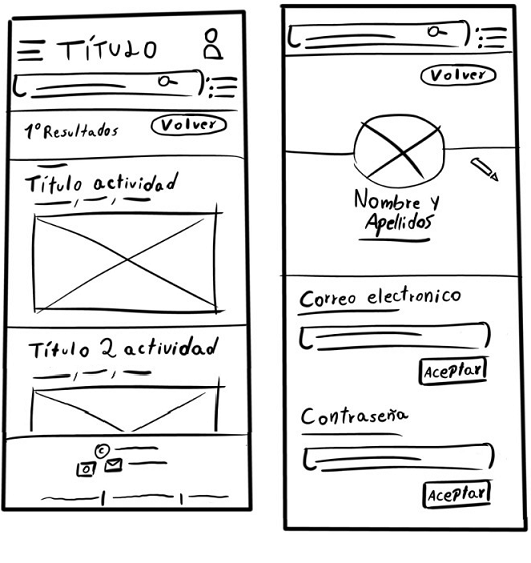 TÍTULO
1º Resultados
Volver
Título actividad
Título 2 actividad
©
Volver
Nombre y
Apellidos
Correo electronico
Aceptar
Contraseña
Aceptar